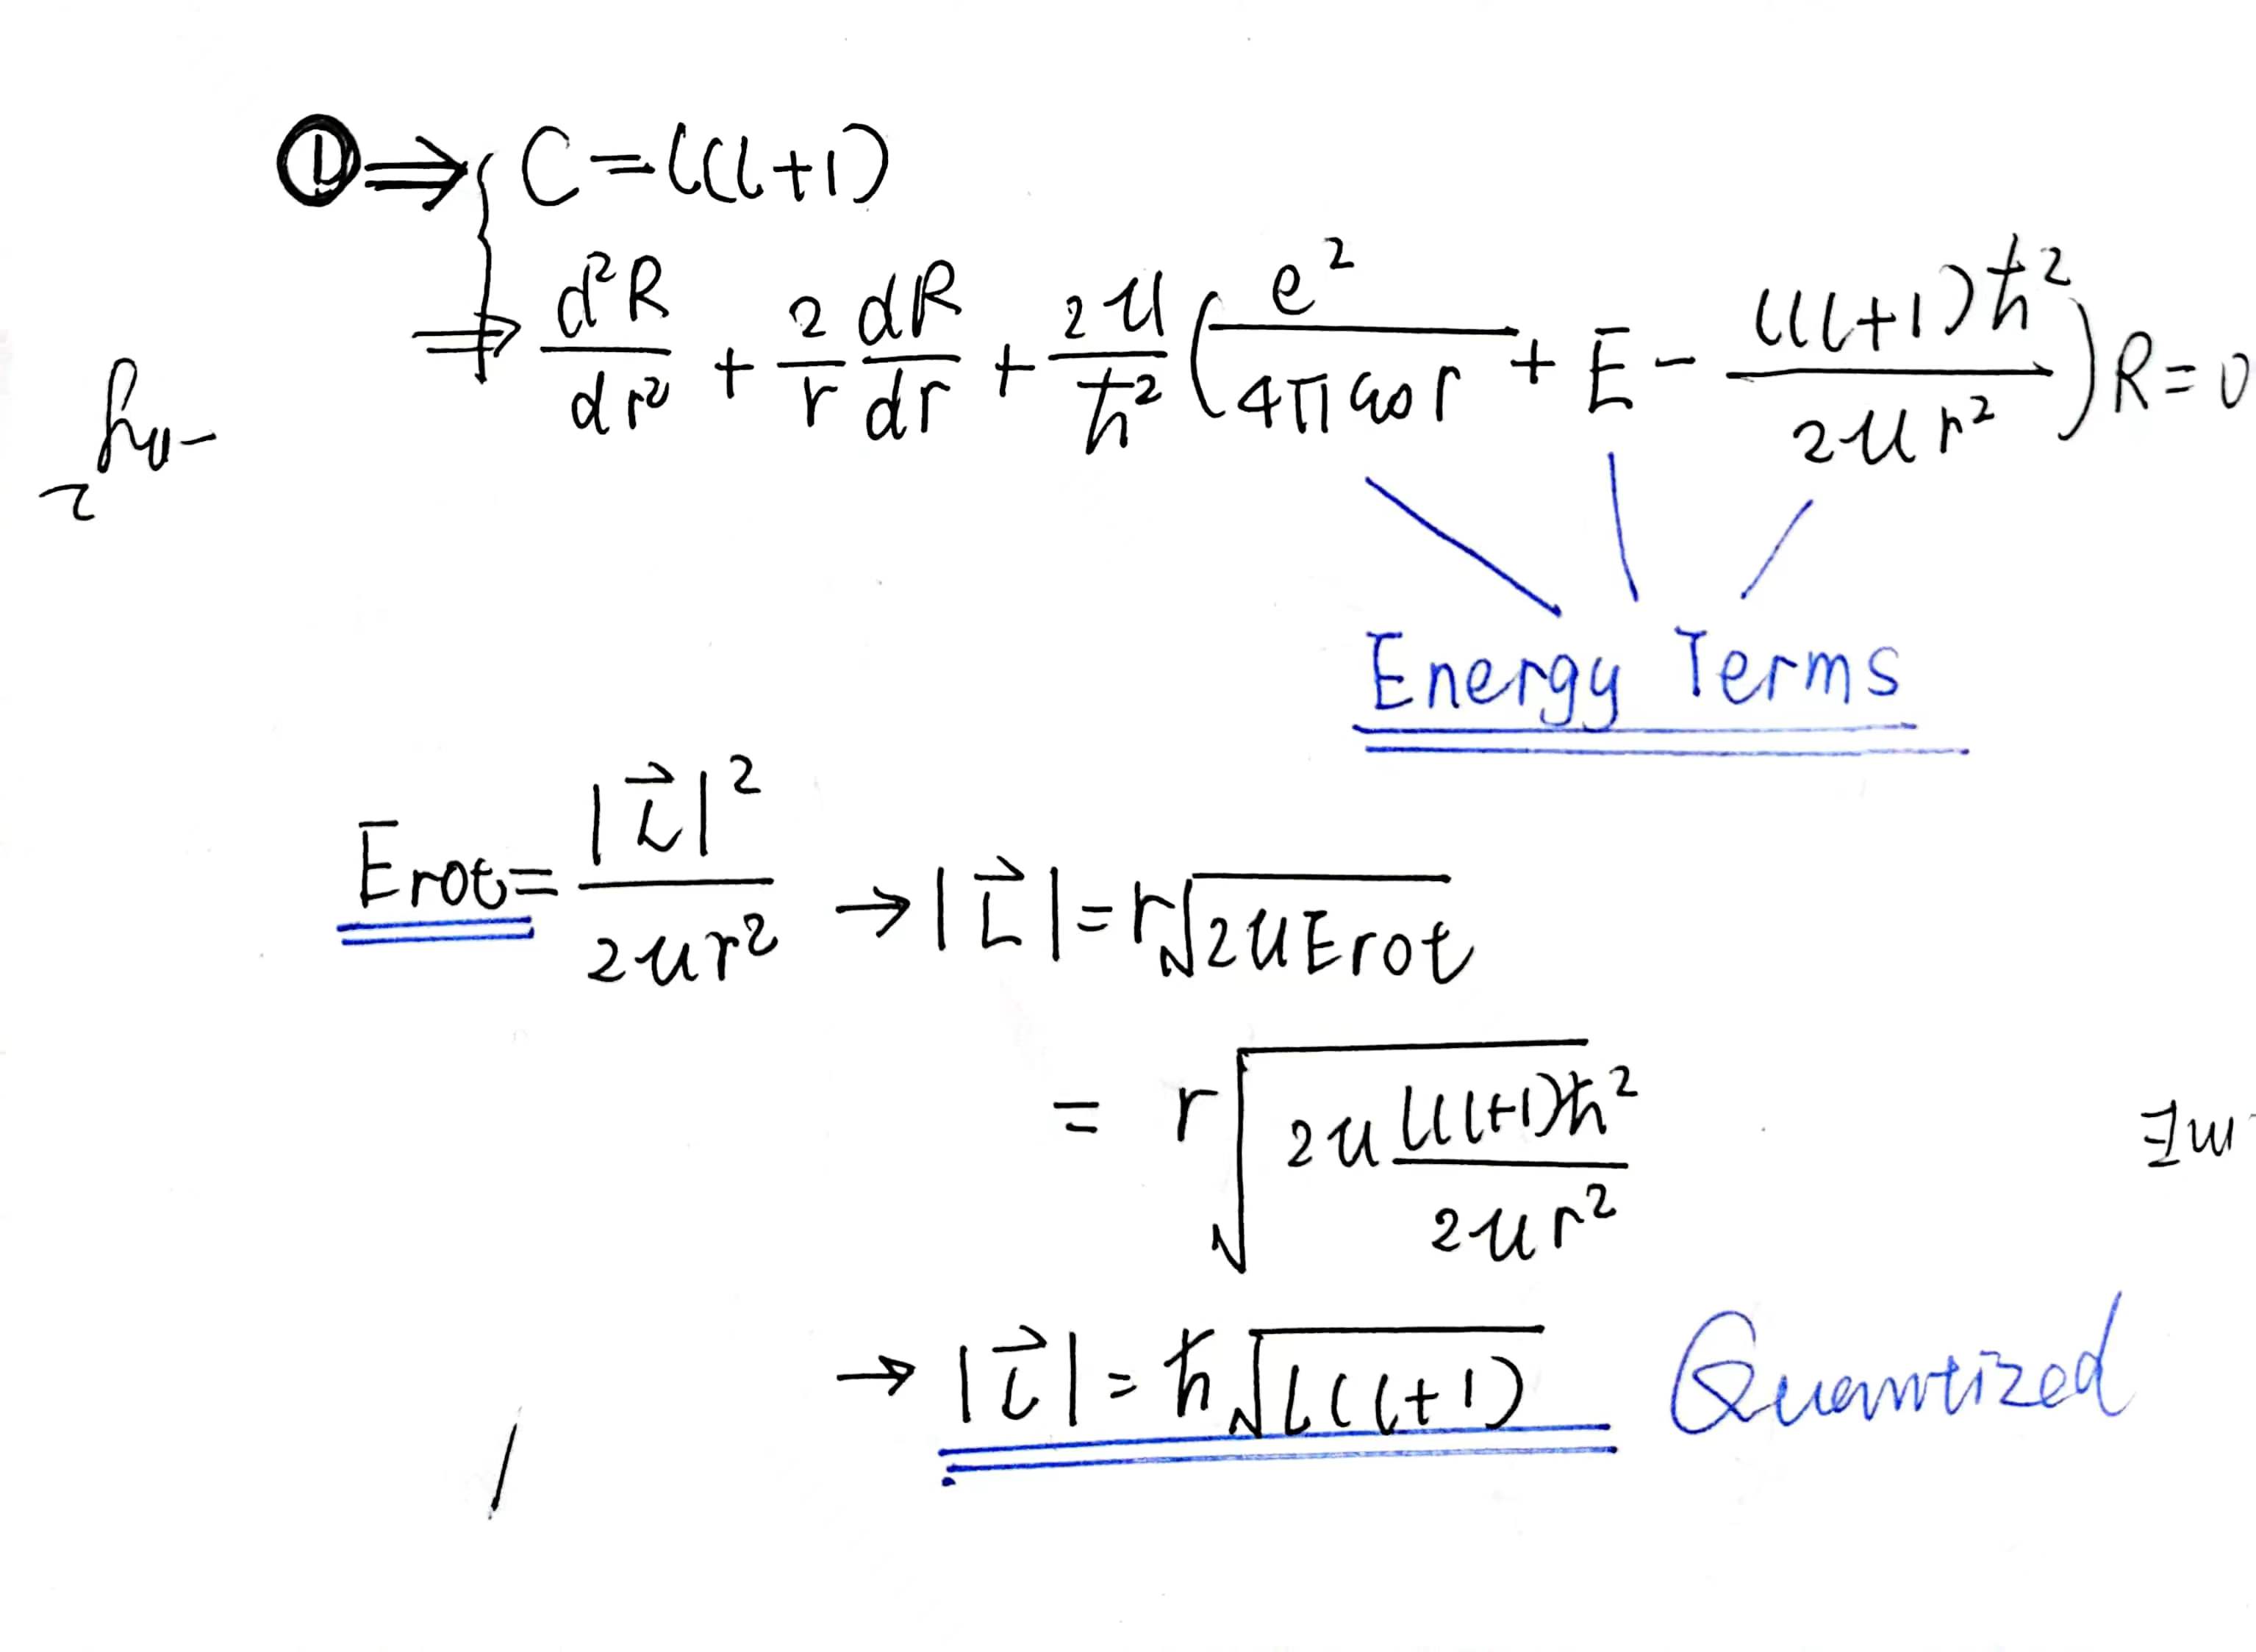 ① ⇒ { C = l(l+1)
⇒ d²R/dr² + 2/r dR/dr + 2μ/ħ² (e²/4πε₀r + E − l(l+1)ħ²/2μr²) R = 0
Energy Terms
Erot = |L⃗|²/2μr² → |L⃗| = r√(2μErot)
= r√(2μ l(l+1)ħ²/2μr²)
→ |L⃗| = ħ√(l(l+1)) Quantized